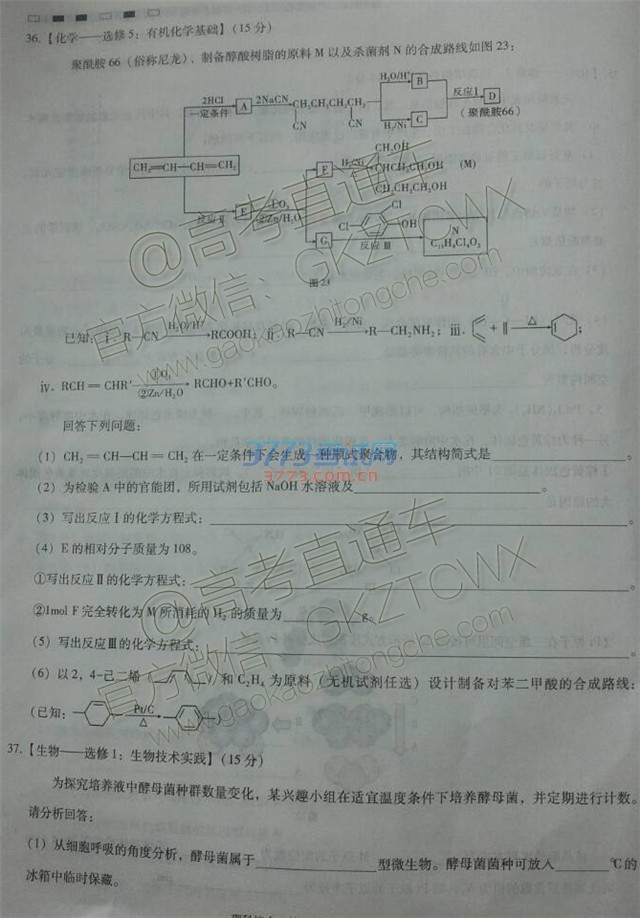 36.【化学——选修5：有机化学基础】（15分）
聚酰胺66（俗称尼龙）、制备醇酸树脂的原料M以及杀菌剂N的合成路线如图23：
2HCl
一定条件
A
2NaCN
CH₂CH₂CH₂CH₂
CN
CN
H₂O/H⁺
B
H₂/Ni
C
反应Ⅰ
D
（聚酰胺66）
CH₂=CH—CH=CH₂
反应Ⅱ
E
①O₃
②Zn/H₂O
F
H₂/Ni
CH₂OH
CHCH₂CH₂OH
CH₂CH₂CH₂OH
(M)
G
Cl
Cl
OH
反应Ⅲ
N
图23
已知：ⅰ. R—CN H₂O/H⁺ RCOOH；ⅱ. R—CN H₂/Ni R—CH₂NH₂；ⅲ. + △ ；
ⅳ. RCH=CHR′ ①O₃ ②Zn/H₂O RCHO+R′CHO。
回答下列问题：
（1）CH₂=CH—CH=CH₂在一定条件下会生成一种顺式聚合物，其结构简式是 。
（2）为检验A中的官能团，所用试剂包括NaOH水溶液及 。
（3）写出反应Ⅰ的化学方程式： 。
（4）E的相对分子质量为108。
①写出反应Ⅱ的化学方程式： 。
②1mol F完全转化为M所消耗的H₂的质量为 g。
（5）写出反应Ⅲ的化学方程式： 。
（6）以2，4-己二烯（ ）和C₂H₄为原料（无机试剂任选）设计制备对苯二甲酸的合成路线：
（已知： Pt/C △ ）
37.【生物——选修1：生物技术实践】（15分）
为探究培养液中酵母菌种群数量变化，某兴趣小组在适宜温度条件下培养酵母菌，并定期进行计数。
请分析回答：
（1）从细胞呼吸的角度分析，酵母菌属于 型微生物。酵母菌菌种可放入 ℃的
冰箱中临时保藏。
@高考直通车
官方微信：GKZTCWX
www.gaokaozhitongche.com
3773考试网
www.3773.com.cn
@高考直通车
官方微信：GKZTCWX
www.gaokaozhitongche.com